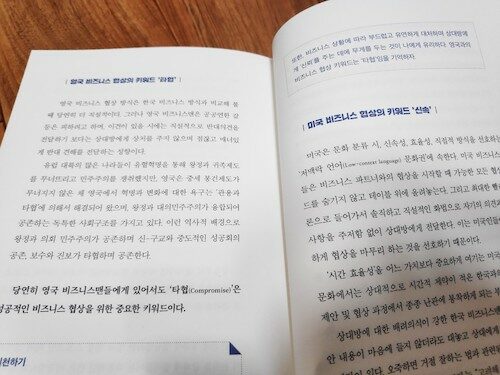 영국 비즈니스 협상의 키워드 '타협'
영국 비즈니스 협상 방식은 한국 비즈니스 방식과 비교해 볼
때 당연히 더 직설적이다. 그러나 영국 비즈니스맨은 공공연한 갈
등은 피하려고 하며, 이견이 있을 시에는 직설적으로 반대의견은
전달하기 보다는 상대방에게 상처를 주지 않으며 점잖고 매너있
게 반대 견해를 전달하는 성향이다.
유럽 대륙의 많은 나라들이 유혈혁명을 통해 왕정과 귀족제도
를 무너뜨리고 민주주의를 쟁취했지만, 영국은 중세 봉건제도가
무너지지 않은 채 영국에서 혁명과 변화에 대한 욕구는 '관용과
타협'에 의해서 해결되어 왔으며, 왕정과 대의민주주의가 융합되어
공존하는 독특한 사회구조를 가지고 있다. 이런 역사적 배경으로
왕정과 의회 민주주의가 공존하며 신·구교와 중도적인 성공회의
공존, 보수와 진보가 타협하며 공존한다.
당연히 영국 비즈니스맨들에게 있어서도 '타협(Compromise)'은
성공적인 비즈니스 협상을 위한 중요한 키워드이다.
천하기
또한, 비즈니스 상황에 따라 부드럽고 유연하게 대처하며 상대방에
게 '신뢰'를 주는 데에 무게를 두는 것이 나에게 유리하다. 영국과의
비즈니스 협상 키워드는 '타협'임을 기억하자.
미국 비즈니스 협상의 키워드 '신속'
미국은 문화 분류 시, 신속성, 효율성, 직접적 방식을 선호하는
'저맥락 언어(Low-context language) 문화권'에 속한다. 미국인
들은 비즈니스 파트너와의 협상을 시작할 때 가능한
를 숨기지 않고 테이블 위에 올려놓는다. 그리고 최대한
론으로 들어가서 솔직하고 직설적인 화법으로 자기의 의견과
사항을 주저함 없이 상대방에게 전달한다. 이는 미국인들
하게 협상을 마무리 하는 것을 선호하기 때문이다.
'시간 효율성'을 어느 가치보다 중요하게 여기는 미국
문화에서는 상대적으로 시간적 제약이 적은 한국
제안 및 협상 과정에서 종종 난관에 봉착하게 되는
상대방에 대한 배려의식이 강한 한국 비즈니스
안 내용이 마음에 들지 않더라도 대놓고 상대에게
이 있다. 오죽하면 거절 잘하는 법과 관련된